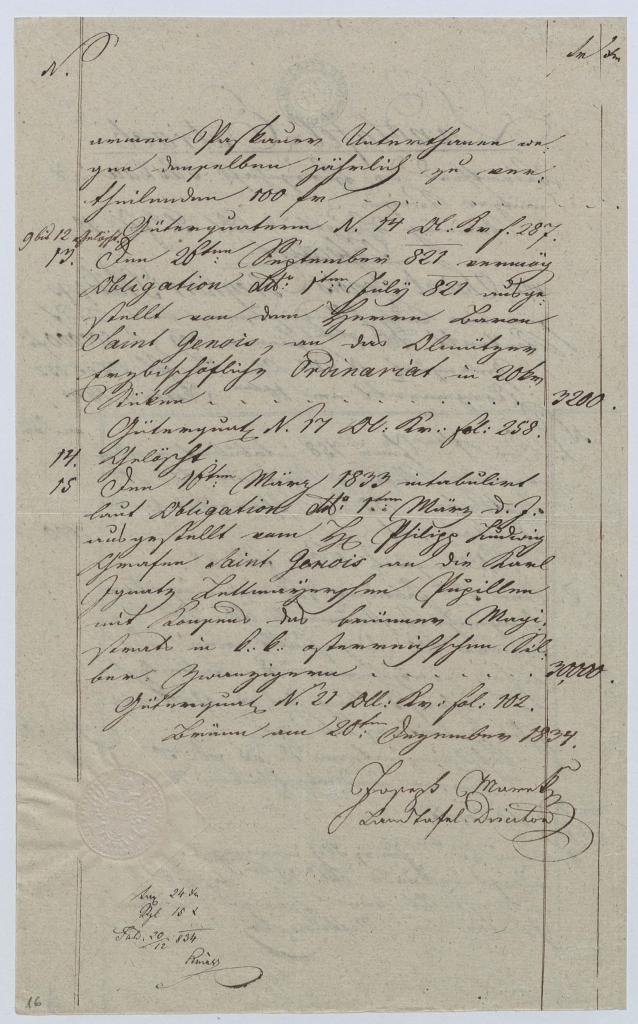 N.
fr kr
armen Paskauer Unterthanen we-
gen denselben jährlich zu ver-
theilenden 100 fr . . .
Güterquatern N. 14 Dl: Kr f. 287.
9 bis 12 Gelöscht
13. Den 26ten September 821 vermög
Obligation dto 1ten July 821 ausge-
stellt von dem Herrn Baron
Saint Genois, an das Olmützer
Erzbischöfliche Ordinariat in 20kr
Stüken . . . . . . . 3200.
Güterquat. N. 17 Dl: Kr: fol: 258.
14. Gelöscht.
15 Den 16ten März 1833 intabulirt
laut Obligation dto 1ten März d. J.
ausgestellt vom H. Philipp Ludwig
Grafen Saint Genois an die Karl
Ignatz Zettmayerschen Pupillen
mit Konsens des brünner Magi-
strats in k. k. österreichischen Sil-
ber Zwanzigern . . . . . . 30,000.
Güterquat. N. 21 Dll: Kr: fol: 102.
Brünn am 20ten Dezember 1834.
Joseph Marek
Landtafel-Direktor
24 kr
15 x
20/12 834
16